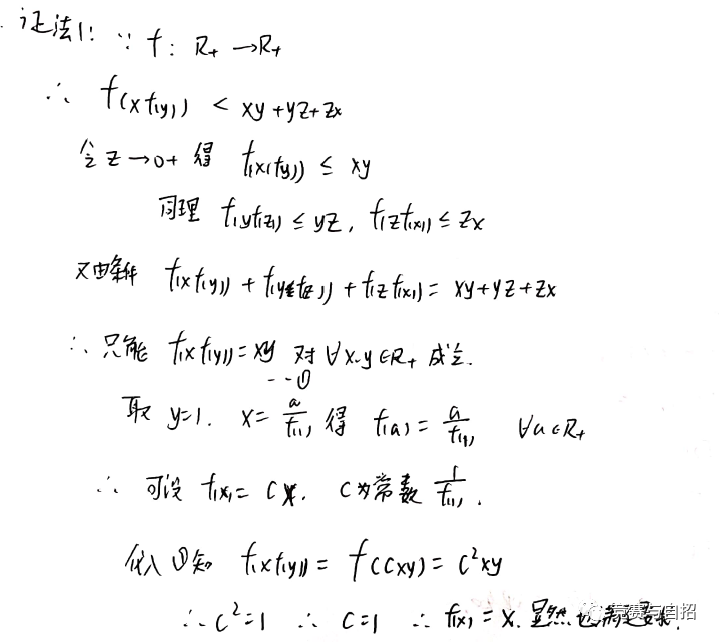 证法1: ∵ f: R+ → R+
∴ f(xf(y)) < xy+yz+zx
令 z→0+ 得 f(x(f(y)) ≤ xy
同理 f(yf(z)) ≤ yz, f(zf(x)) ≤ zx
又由条件 f(xf(y)) + f(yf(z)) + f(zf(x)) = xy+yz+zx
∴ 只能 f(xf(y)) = xy 对 ∀x.y∈R+ 成立.
--①
取 y=1. x= a/f(1) 得 f(a) = a/f(1) ∀a∈R+
∴ 可设 f(x) = Cx. C为常数 1/f(1).
代入①知 f(xf(y)) = f(Cxy) = C²xy
∴ C²=1 ∴ C=1 ∴ f(x) = x. 显然也满足要求.
竞赛与自招